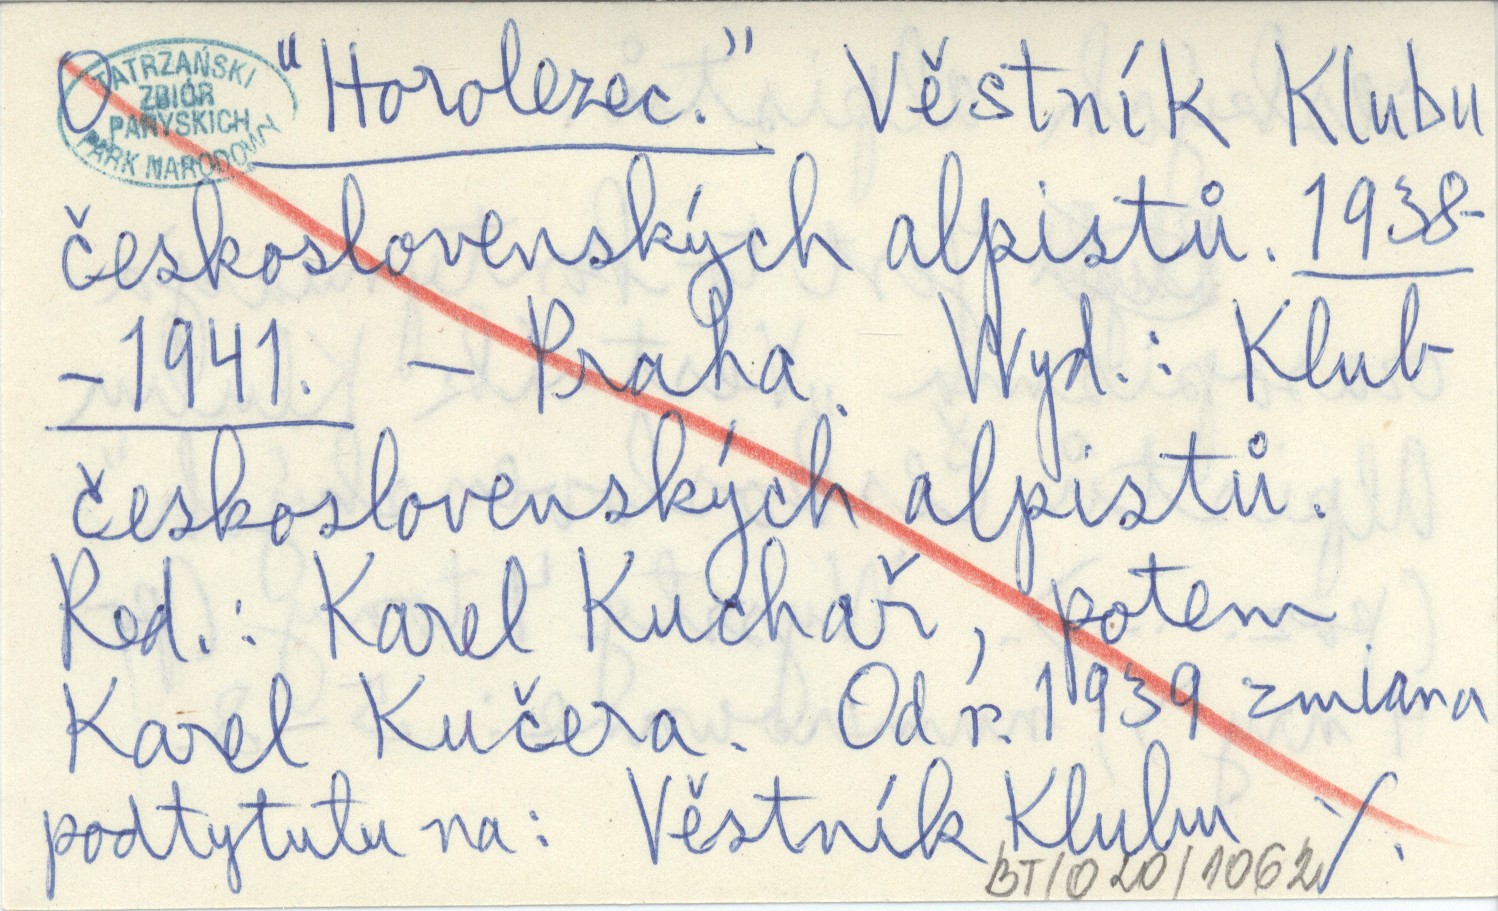 O "Horolezec." Věstník Klubu
TATRZAŃSKI
ZBIÓR
PARYSKICH
PARK NARODOWY
československých alpistů. 1938-
-1941. - Praha. Wyd.: Klub
československých alpistů.
Red.: Karel Kuchař, potem
Karel Kučera. Od r. 1939 zmiana
podtytułu na: Věstník Klubu ./.
BT/020/1062